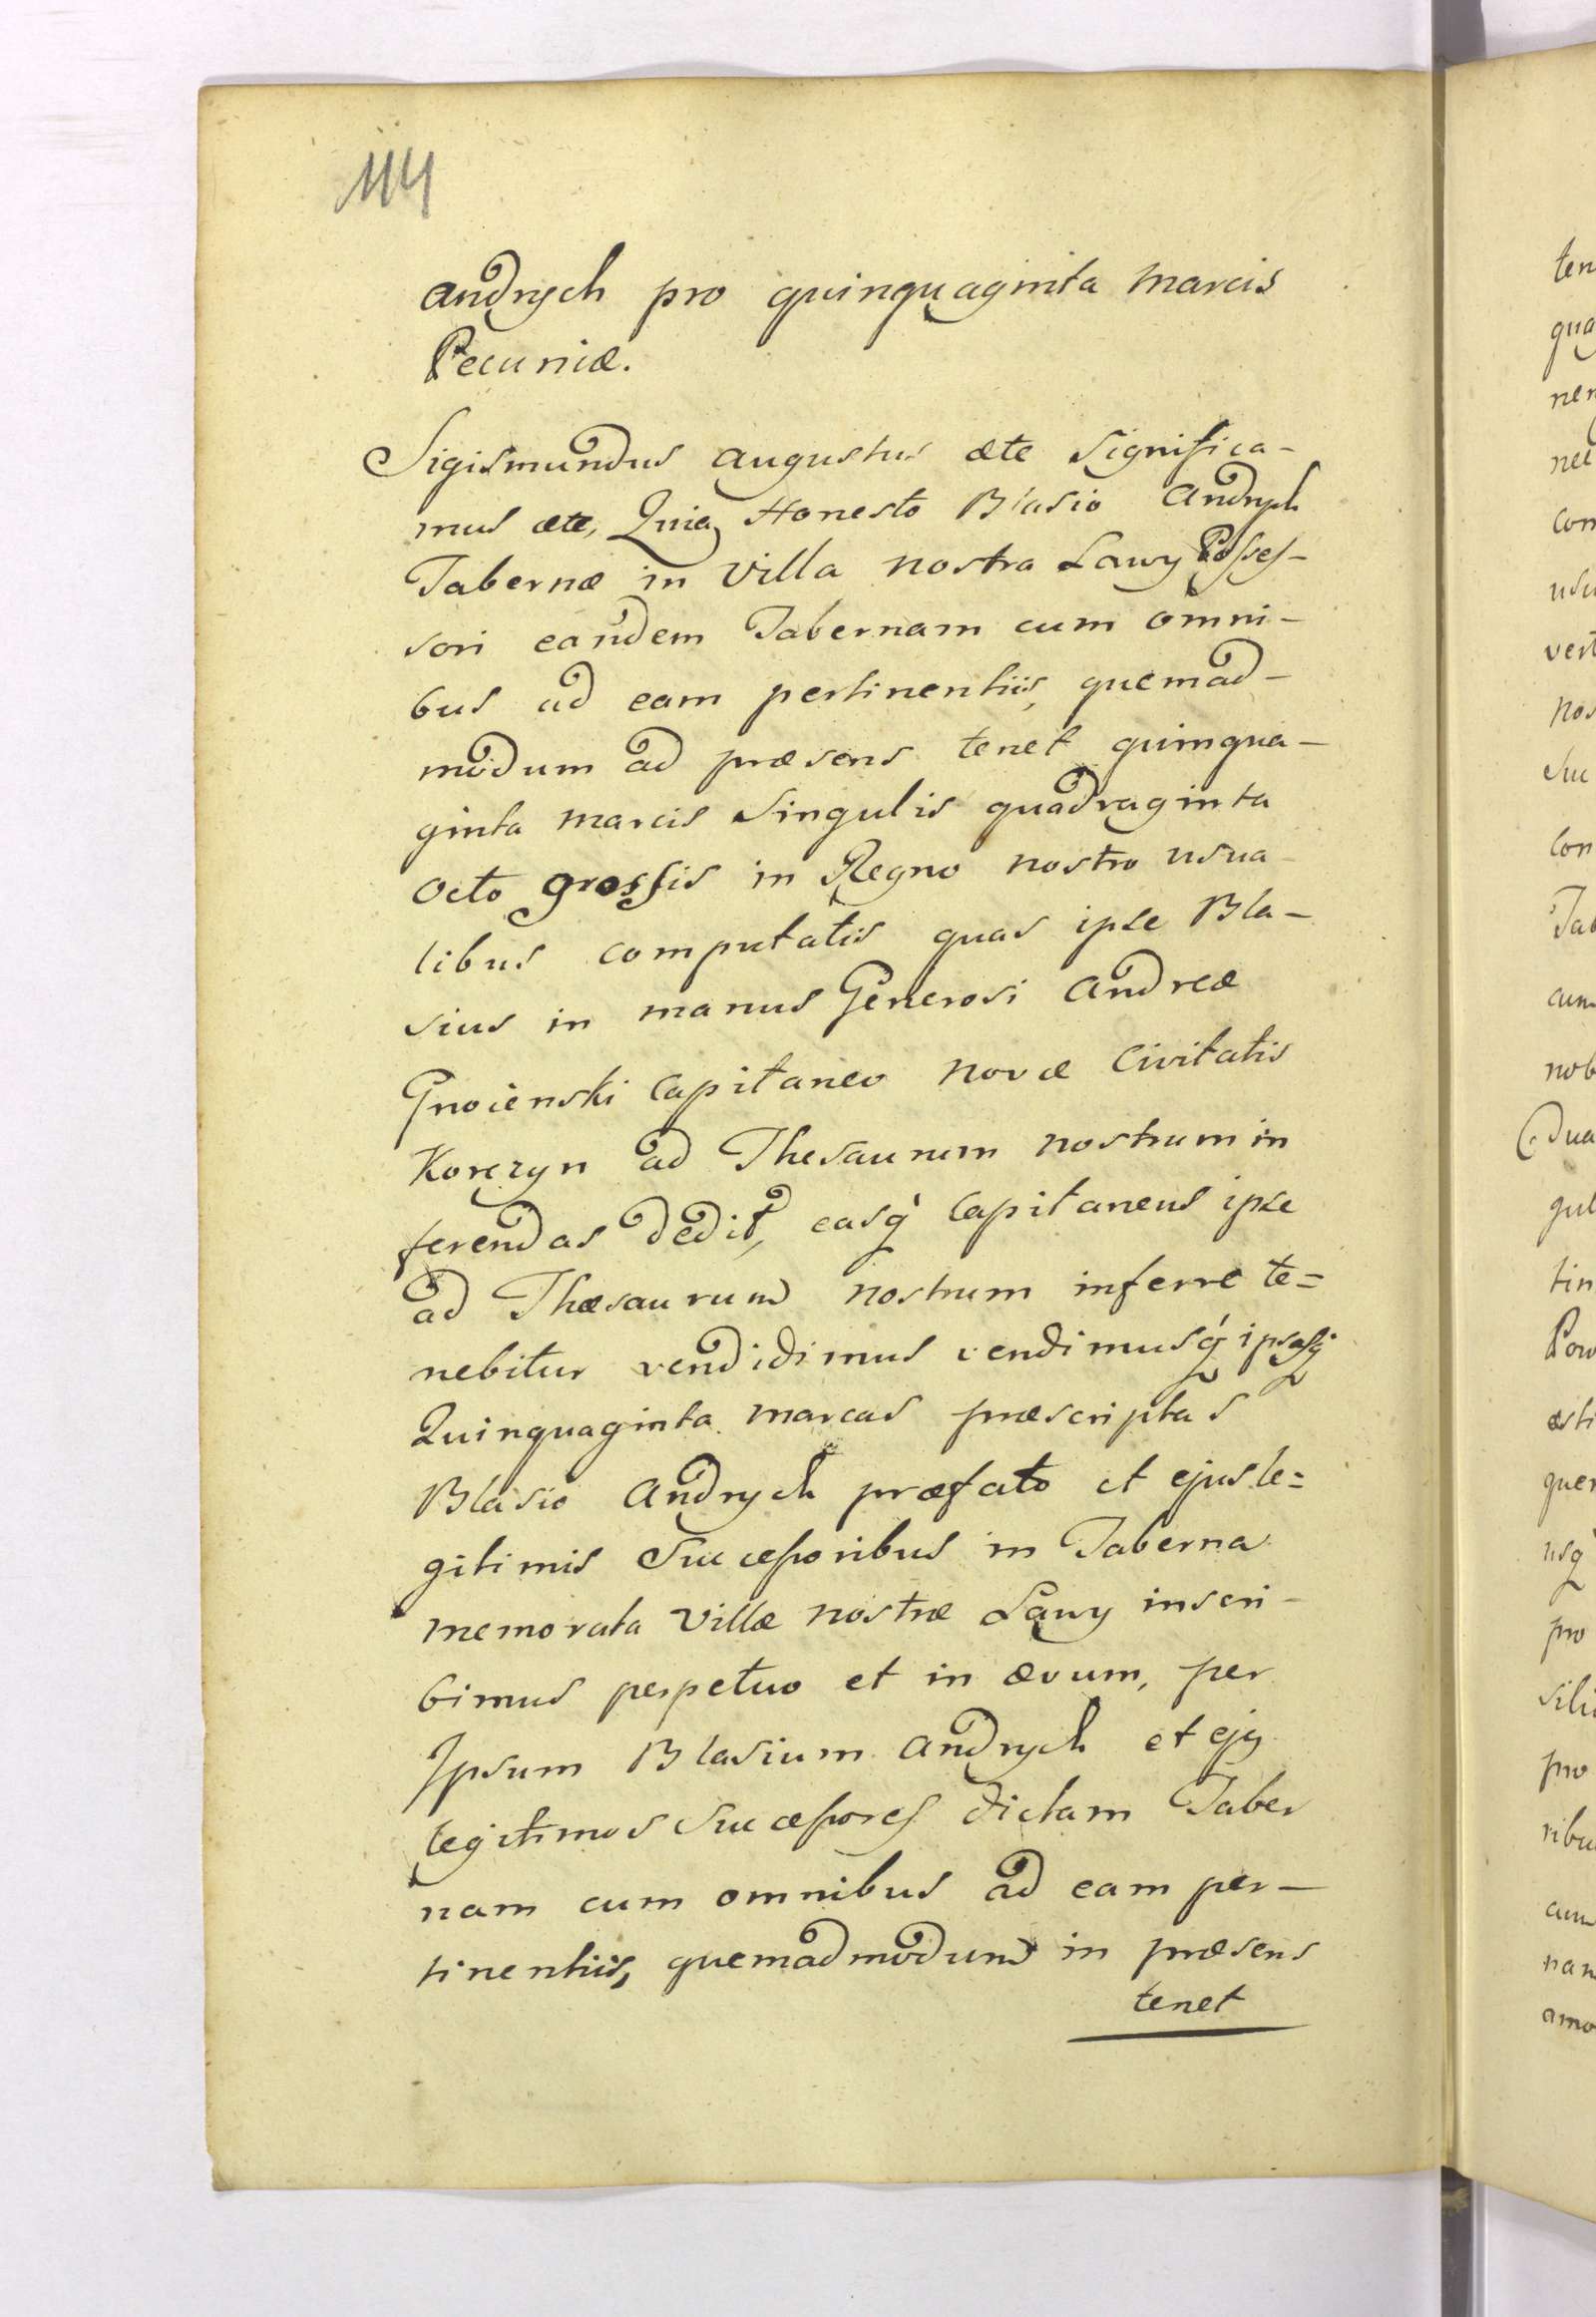 114
Andrych pro quinquaginta Marcis
Pecuniæ.
Sigismundus Augustus æte Significa-
mus æte, Quia Honesto Blasio Andrych
Tabernæ in Villa nostra Lawy Posses-
sori eandem Tabernam cum omni-
bus ad eam pertinentiis, quemad-
modum ad præsens tenet quinqua-
ginta marcis Singulis quadraginta
Octo grossis in Regno nostro usua
libus computatis quas ipse Bla-
sius in manus Generosi Andreæ
Gnoienski Capitaneo Novæ Civitatis
Korczyn ad Thesaurum nostrum in
ferendas dedit, easq̀ Capitaneus ipse
ad Thæsaurum nostrum inferre te=
nebitur vendidimus vendimusq́ ipsasq́
Quinquaginta marcas præscriptas
Blasio Andrych præfato et ejus le=
gitimis Successoribus in Taberna
memorata Villæ nostræ Lawy inscri-
bimus perpetuo et in ævum, per
Ipsum Blasium Andrych et ejus
legitimos Successores dictam Taber
nam cum omnibus ad eam per-
tinentiis, quemadmodum in præsens
tenet